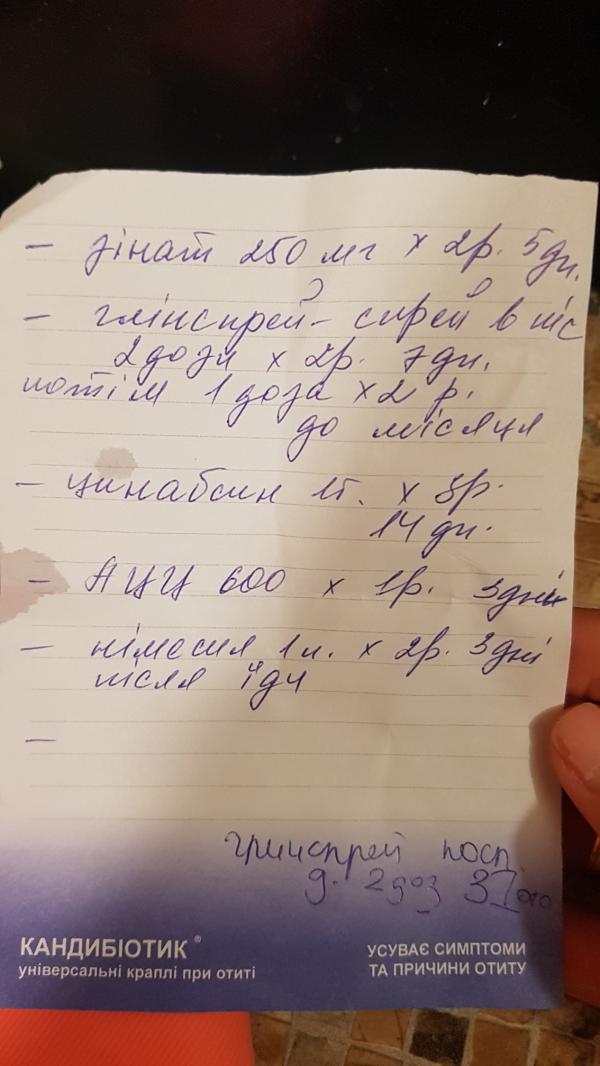 — зінат 250 мг х 2р. 5дн.
— глінспрей – спрей в ніс
2 дози х 2р. 7дн.
потім 1 доза х 2 р.
до місяця
— цинабсин 1т. х 3р.
14 дн.
— АЦЦ 600 х 1р. 3дні
— німесил 1п. х 2р. 3дні
після їди
—
грипспрей носп.
д. 2доз
КАНДИБІОТИК®
універсальні краплі при отиті
УСУВАЄ СИМПТОМИ
ТА ПРИЧИНИ ОТИТУ